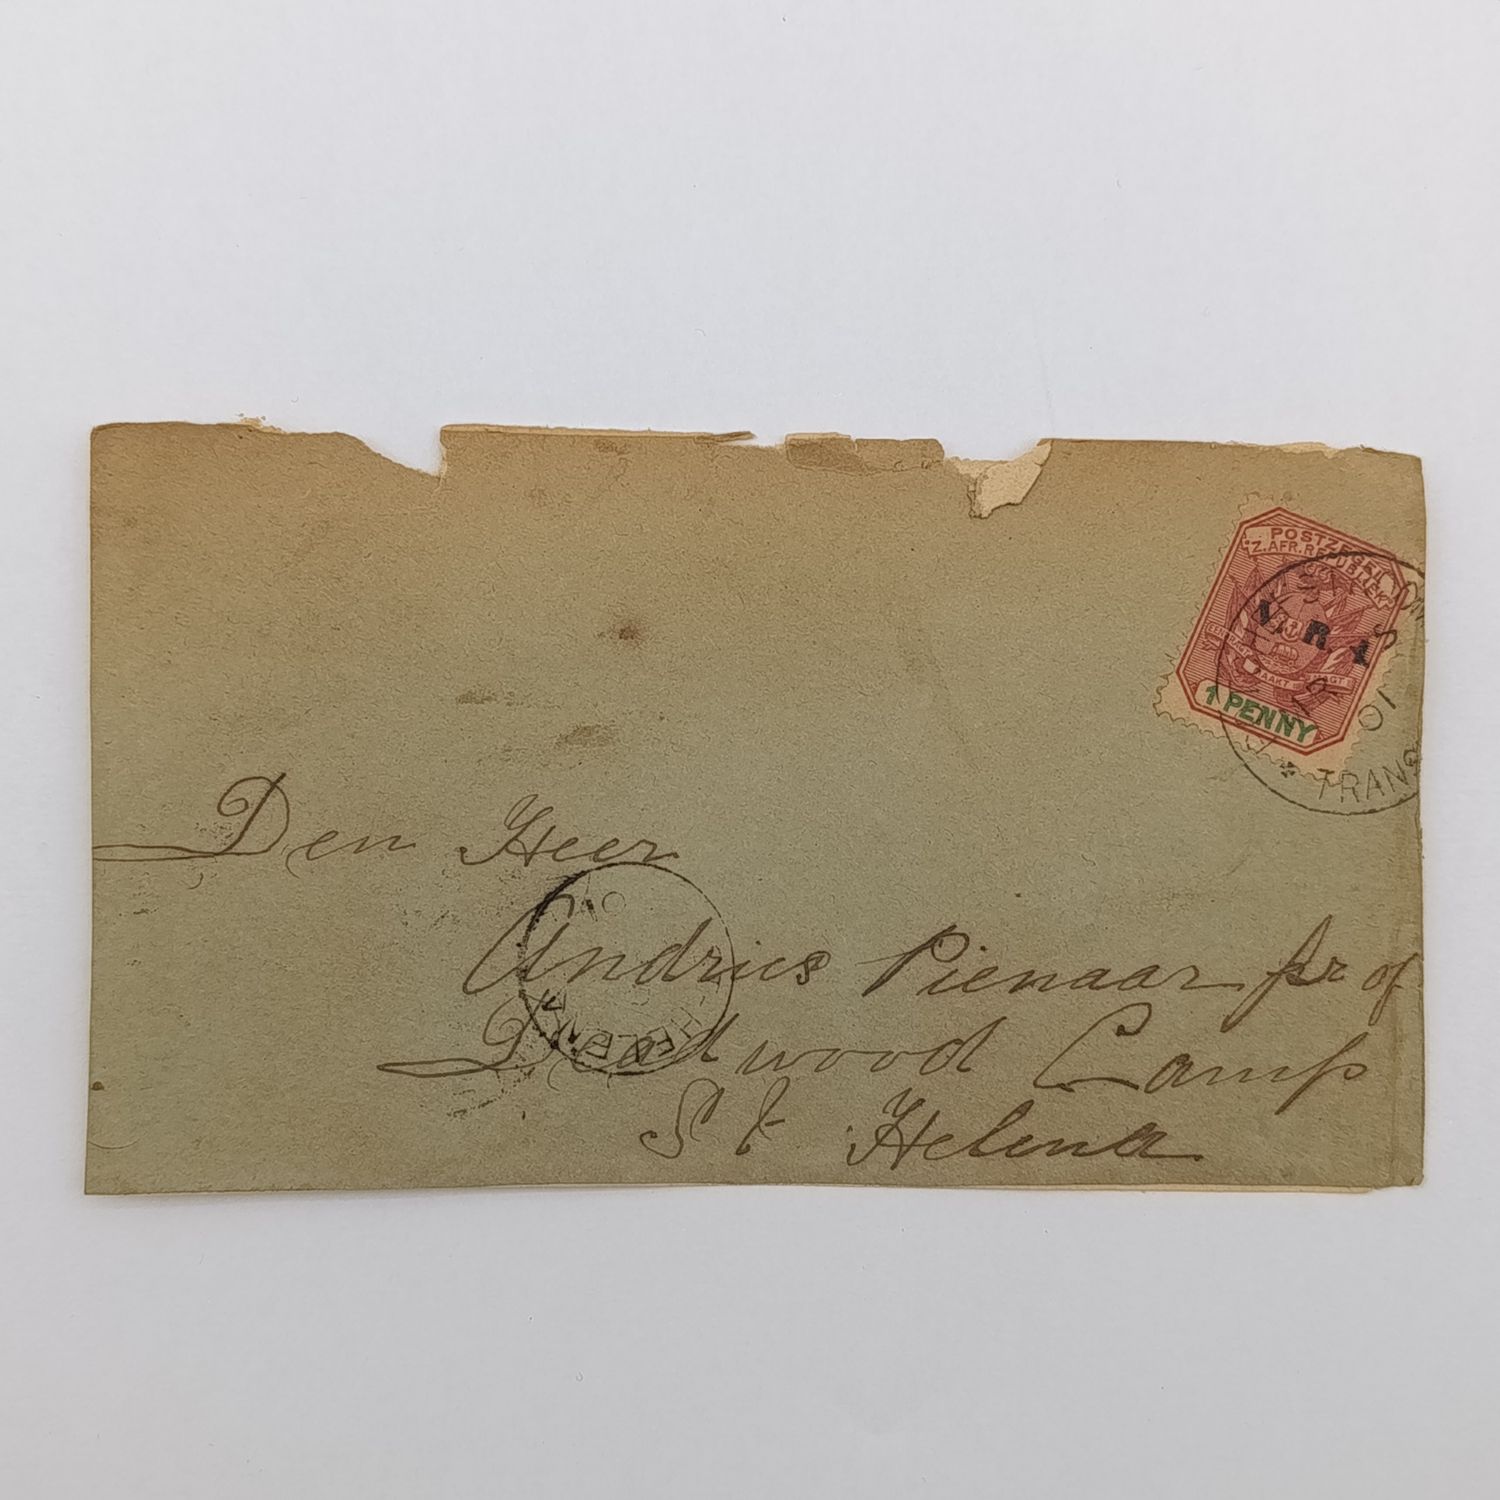 POSTZEGEL
Z. AFR. REPUBLIEK
V. R. I
MAAKT MAGT
1 PENNY
01
TRANS
Den Heer
Andries Pienaar pr of
Deadwood Camp
St Helena
01
HELENA